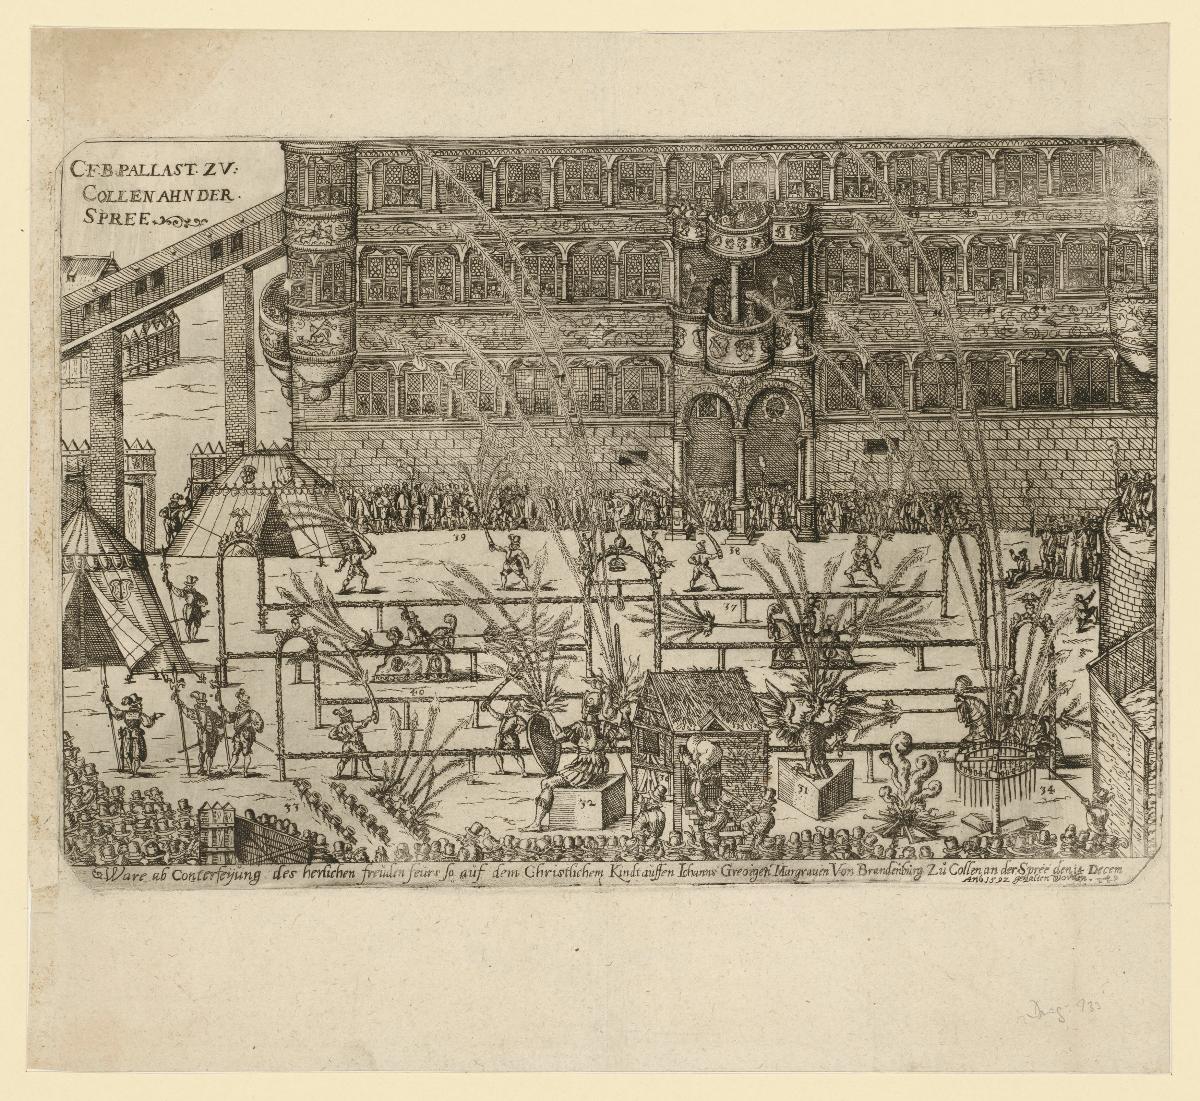 CF.B.PALLAST. ZV:
COLLEN AHN DER.
SPREE.
39
38
37
40
36
33
32
31
34
Ware ab Conterfeyung des herlichen freuden feurs so auf dem Christlichem Kindtauffen Iohanns Georgen Margrauen Von Brandenburg Zů Collen an der Spree den 14 Decem
Año 1592 gehalten worden.